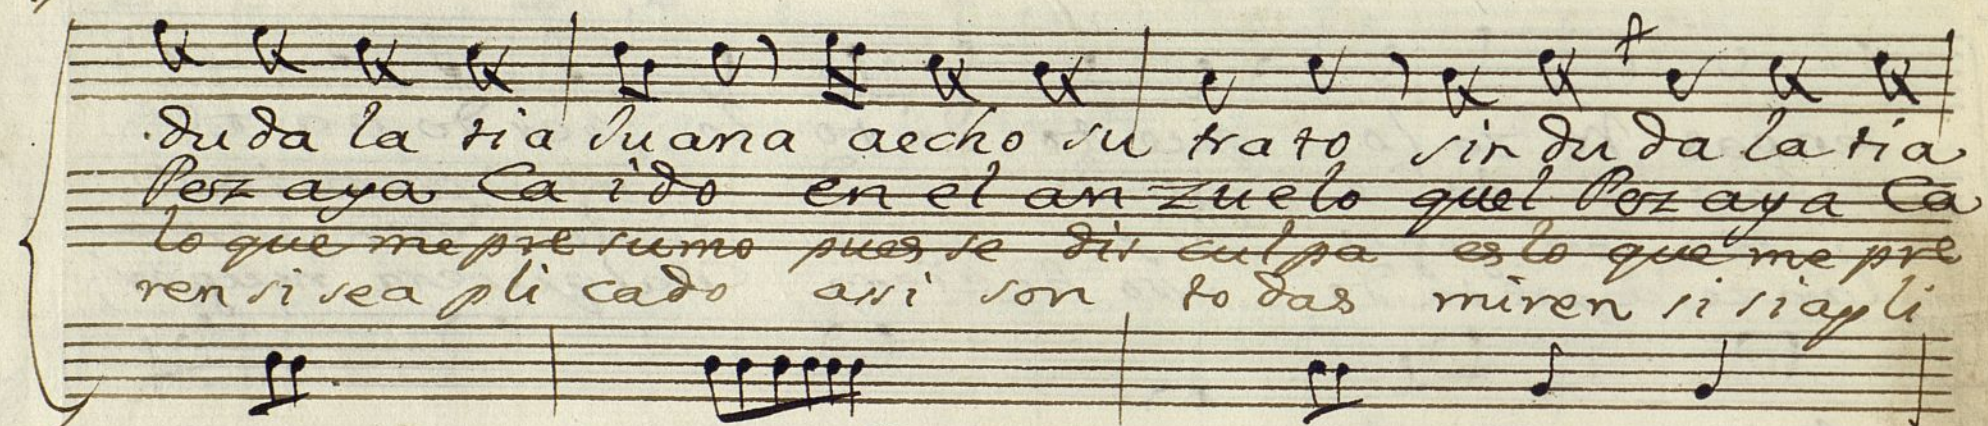 duda la tia Juana aecho su trato sin duda la tia
Pez aya Ca ido en el an zuelo quel Pez aya Ca
lo que me pre sumo pues se dis culpa es lo que me pre
ren si sea pli cado assi son to das miren si si apli